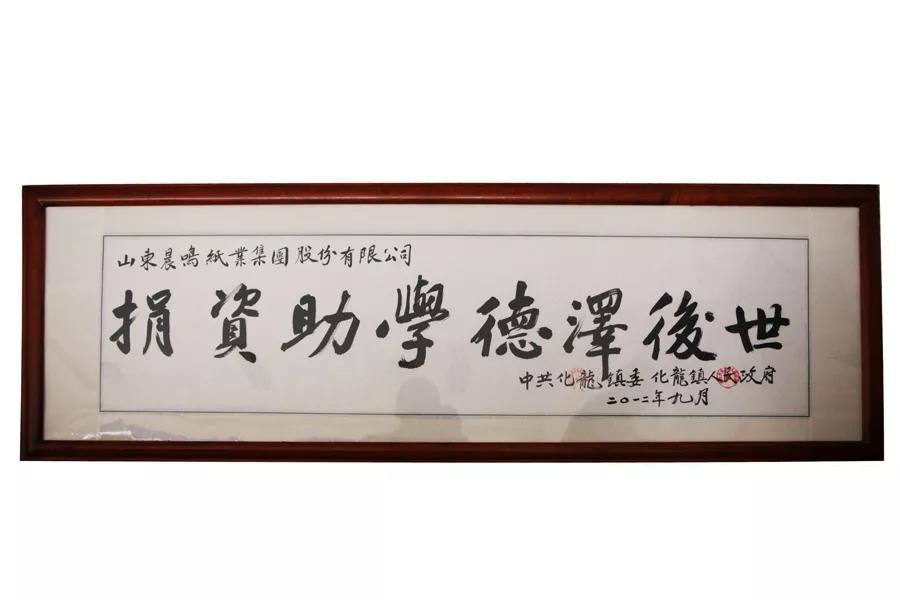 山東晨鳴紙業集團股份有限公司
捐資助學德澤後世
中共化龍鎮委 化龍鎮人民政府
二〇一二年九月